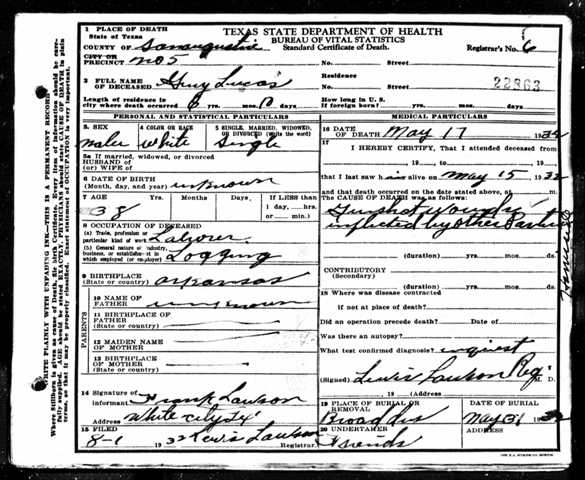 TEXAS STATE DEPARTMENT OF HEALTH
BUREAU OF VITAL STATISTICS
Standard Certificate of Death.
Registrar's No. 6
1 PLACE OF DEATH
State of Texas
COUNTY OF Sanaugustine
CITY OR
PRECINCT no 5
No. Street
2 FULL NAME
OF DECEASED Guy Lucas
Residence
No. Street
22363
Length of residence in
city where death occurred yrs. mos. days
How long in U. S.
if foreign born? yrs. mos. days
PERSONAL AND STATISTICAL PARTICULARS
3. SEX
male
4 COLOR OR RACE
White
5 SINGLE, MARRIED, WIDOWED,
OR DIVORCED (Write the word)
Single
5a If married, widowed, or divorced
HUSBAND OF
(or) WIFE OF
6 DATE OF BIRTH
(Month, day, and year) unknown
7 AGE Years Months Days
If LESS than
1 day, hrs.
or min.
38
8 OCCUPATION OF DECEASED
(a) Trade, profession or
particular kind of work Laborer
(b) General nature of industry,
business, or establishment in
which employed (or employer) Logging
9 BIRTHPLACE
(State or country) arkansas
PARENTS
10 NAME OF
FATHER unknown
11 BIRTHPLACE OF
FATHER
(State or country)
12 MAIDEN NAME
OF MOTHER
13 BIRTHPLACE OF
MOTHER
(State or country)
14 Signature of
informant Frank Lawson
Address White City Tx
15 FILED
8-1 1932 Lewis Lawson
Registrar
MEDICAL PARTICULARS
16 DATE
OF DEATH May 17 1932
17
I HEREBY CERTIFY, That I attended deceased
from
, 19 to , 19
that I last saw h is alive on May 15 1932
and that death occurred on the date stated above, at m.
The CAUSE OF DEATH was as follows:
Gunshot wounds
inflected by other Parties
Homicide
(duration) yrs. mos. ds.
CONTRIBUTORY
(Secondary)
(duration) yrs. mos. ds.
18 Where was disease contracted
if not at place of death?
Did an operation precede death? Date of
Was there an autopsy?
What test confirmed diagnosis? inquest
(Signed) Lewis Lawson Reg M. D.
, 19 (Address)
19 PLACE OF BURIAL OR
REMOVAL
Broaddus
DATE OF BURIAL
May 31 1932
20 UNDERTAKER
Friends
ADDRESS